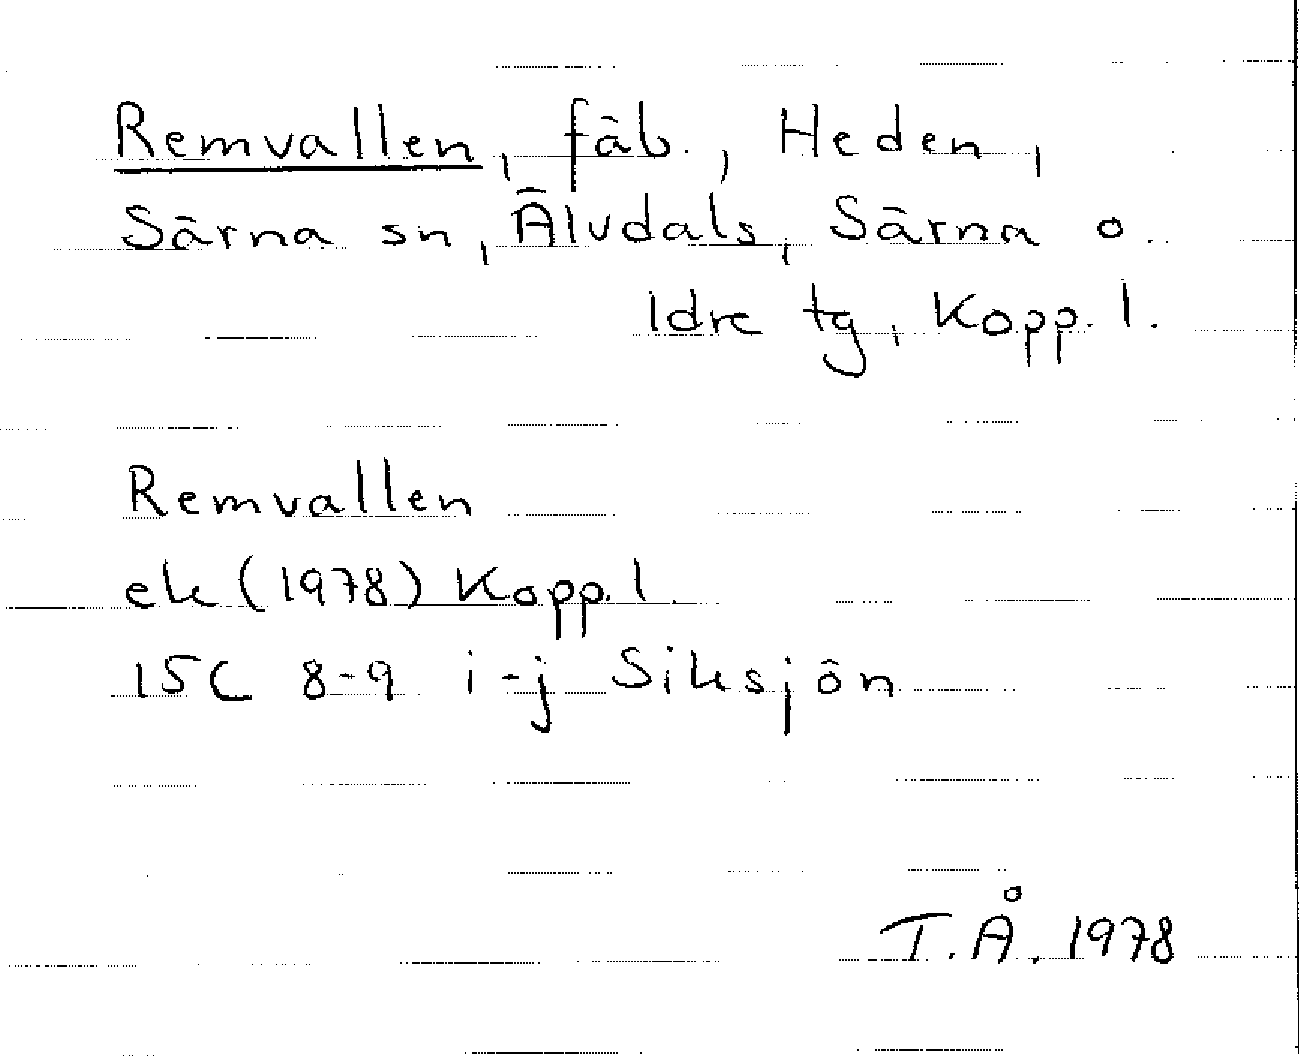 Remvallen, fäb., Heden,
Särna sn, Älvdals, Särna o
Idre tg, Kopp. l.
Remvallen
ek (1978) Kopp. l.
15C 8-9 i-j Siksjön
T.Å. 1978